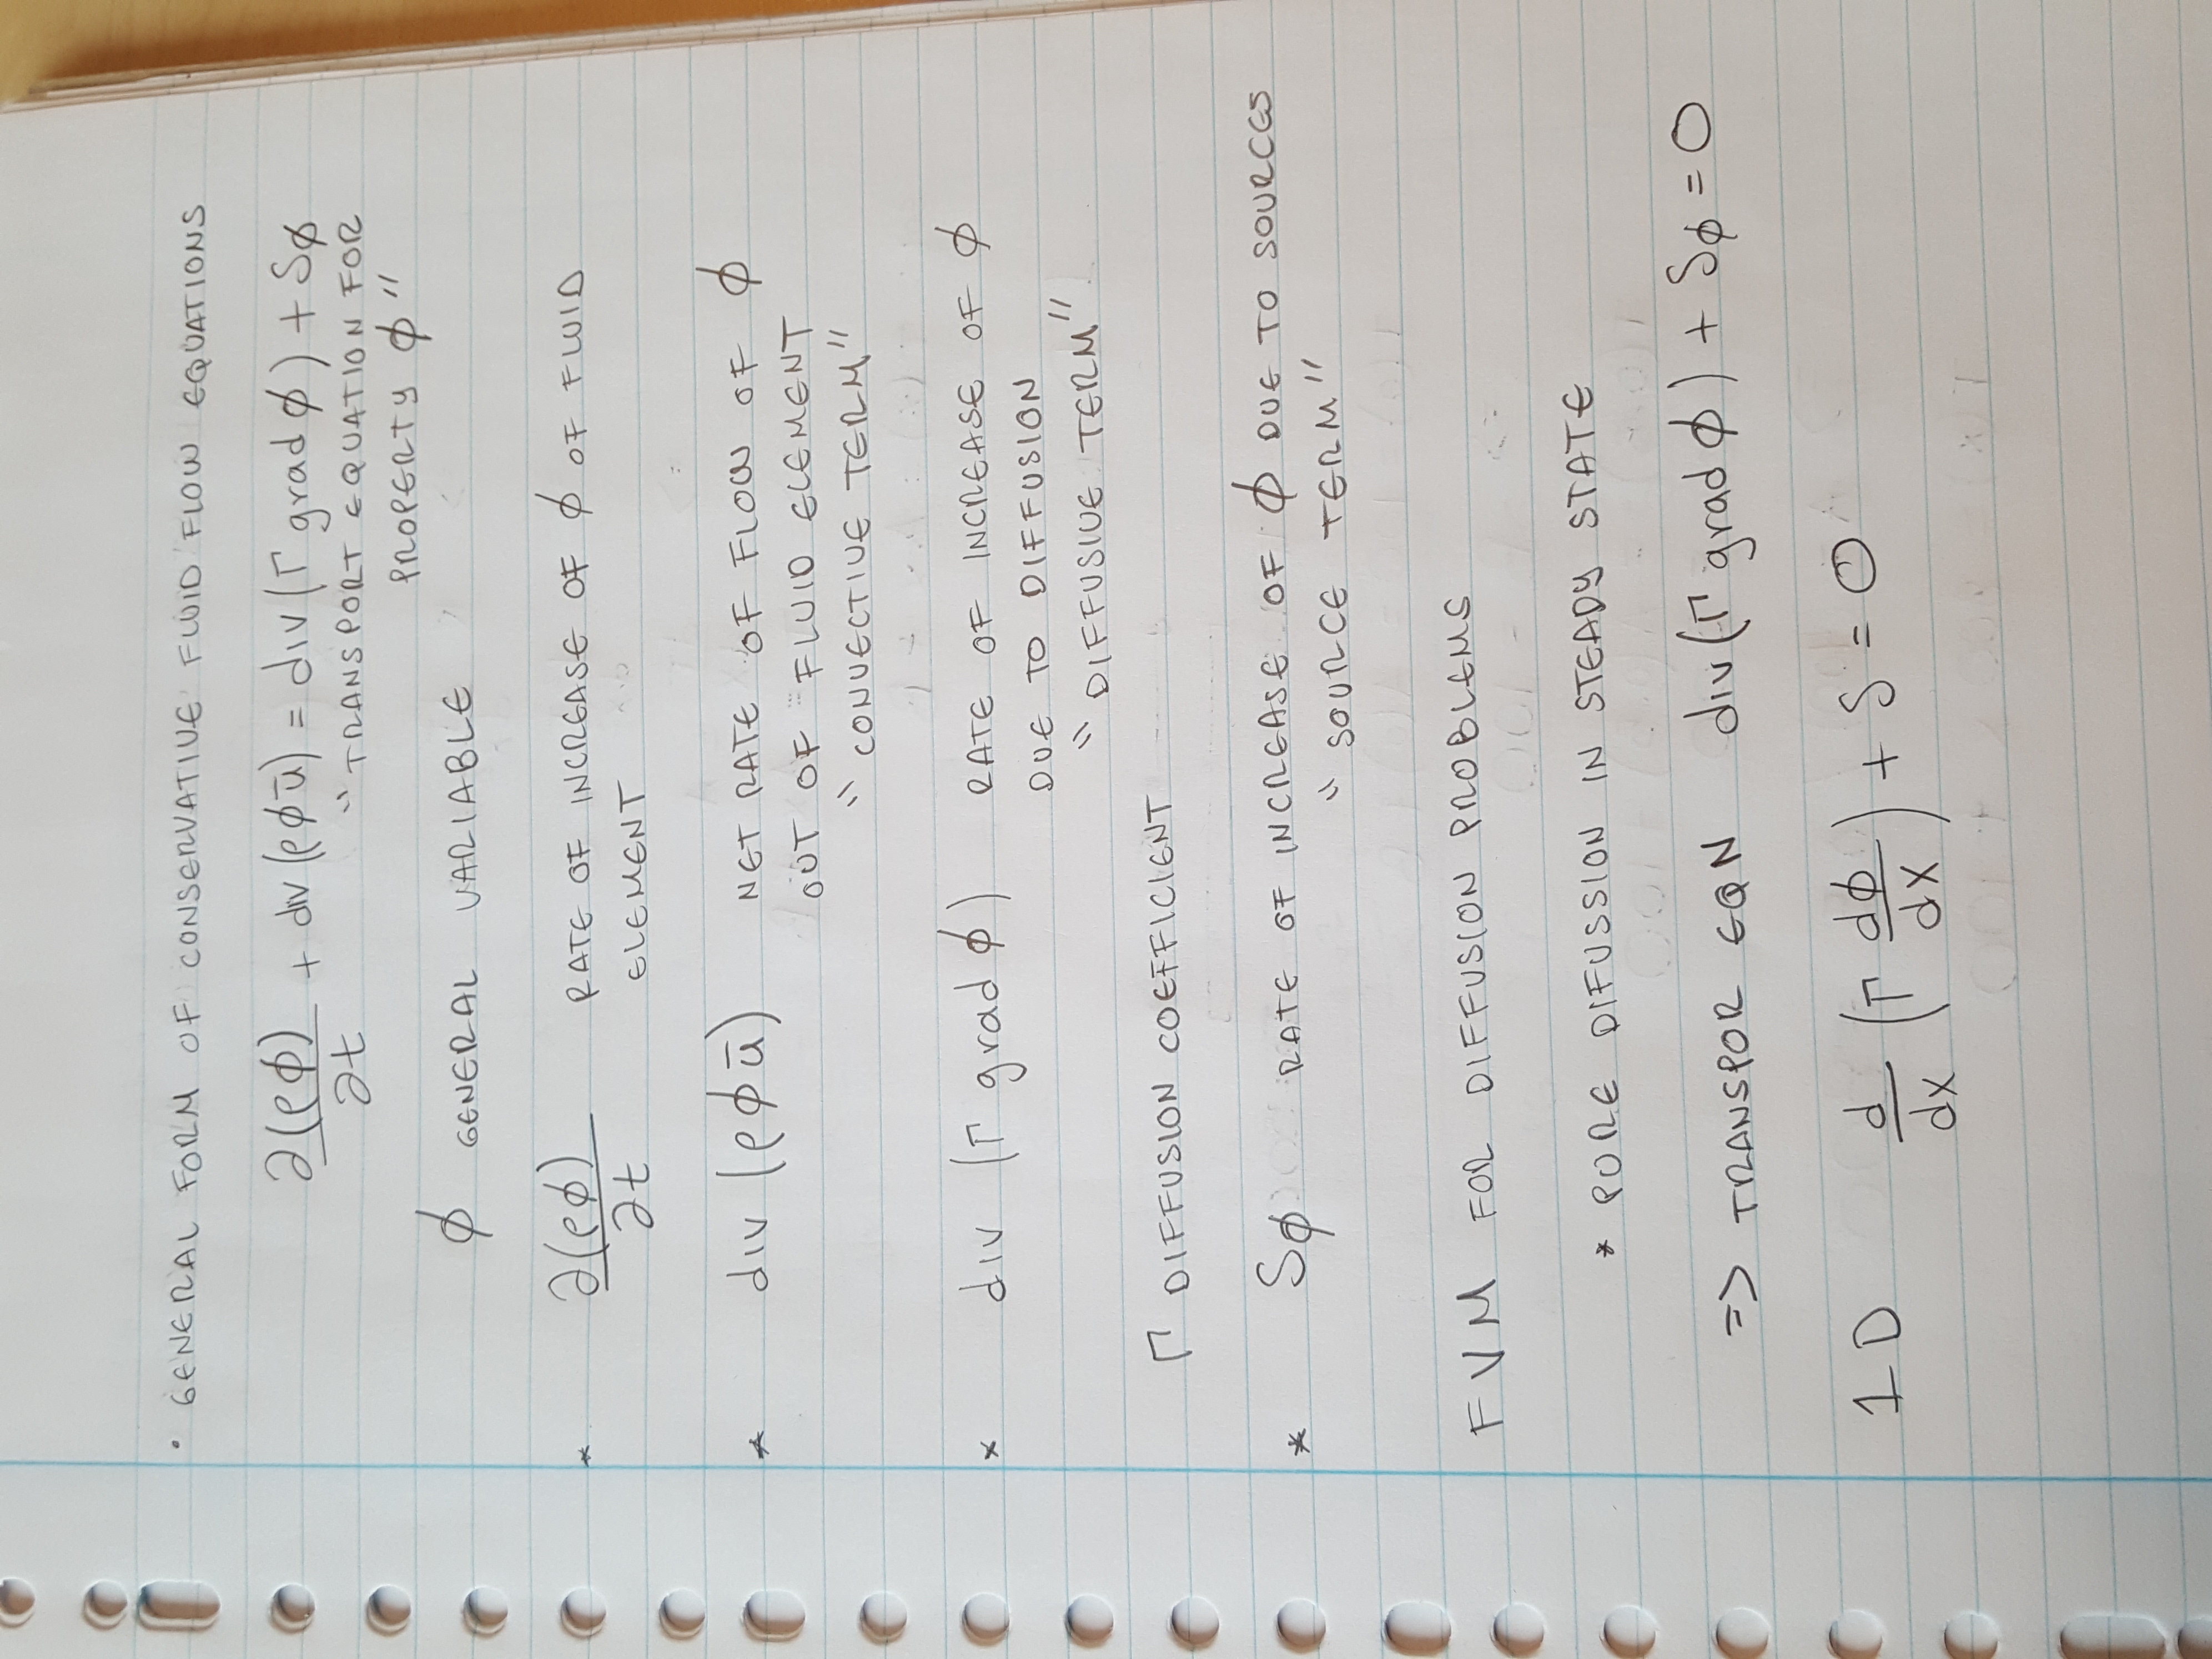 · GENERAL FORM OF CONSERVATIVE FLUID FLOW EQUATIONS
∂(ρϕ)/∂t + div(ρϕū) = div(Γ grad ϕ) + Sϕ
"TRANSPORT EQUATION FOR
PROPERTY ϕ"
ϕ GENERAL VARIABLE
* ∂(ρϕ)/∂t RATE OF INCREASE OF ϕ OF FLUID
ELEMENT
* div (ρϕū) NET RATE OF FLOW OF ϕ
OUT OF FLUID ELEMENT
"CONVECTIVE TERM"
* div (Γ grad ϕ) RATE OF INCREASE OF ϕ
DUE TO DIFFUSION
"DIFFUSIVE TERM"
Γ DIFFUSION COEFFICIENT
* Sϕ RATE OF INCREASE OF ϕ DUE TO SOURCES
"SOURCE TERM"
FVM FOR DIFFUSION PROBLEMS
* PURE DIFUSSION IN STEADY STATE
=> TRANSPOR EQN div(Γ grad ϕ) + Sϕ = 0
1D d/dx (Γ dϕ/dx) + S = 0